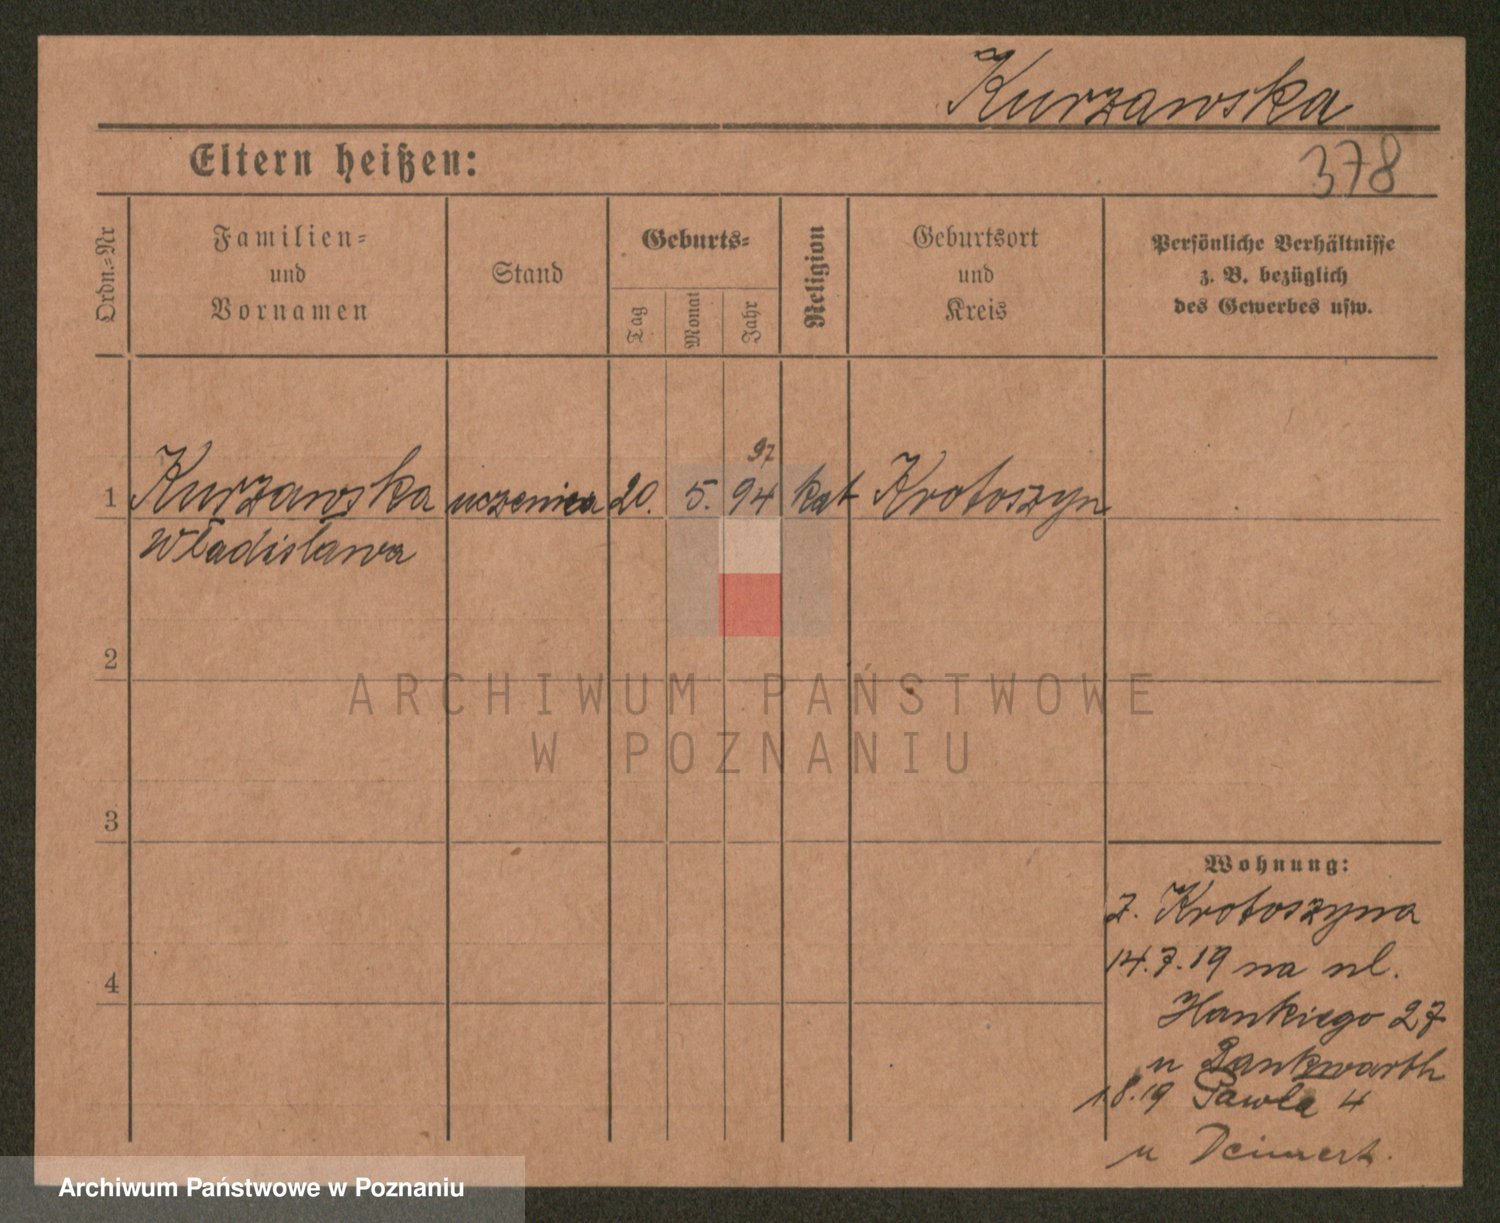 Kurzawska
Eltern heißen:
378
Ordn.=Nr
Familien=
und
Vornamen
Stand
Geburts=
Tag
Monat
Jahr
Religion
Geburtsort
und
Kreis
Persönliche Verhältnisse
z. B. bezüglich
des Gewerbes usw.
97
1 Kurzawska uczenica 20. 5. 94 kat Krotoszyn
Władisława
2
ARCHIWUM PAŃSTWOWE
W POZNANIU
3
Wohnung:
z. Krotoszyna
4
14.7.19 na ul.
27
u
1.8.19 Pawła 4
u
Archiwum Państwowe w Poznaniu